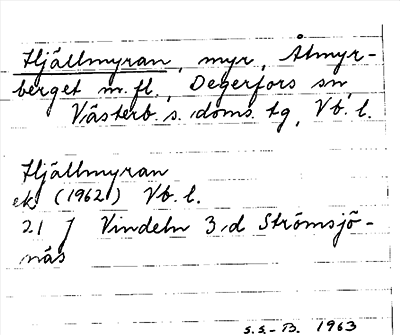 Hjällmyran, myr, Åmyr-
berget m.fl., Degerfors sn
Västerb. s. doms. tg, Vb. l.
Hjällmyran
ek (1962) Vb. l.
21 J Vindeln 3;d Strömsjö-
näs
S.S.-B. 1963